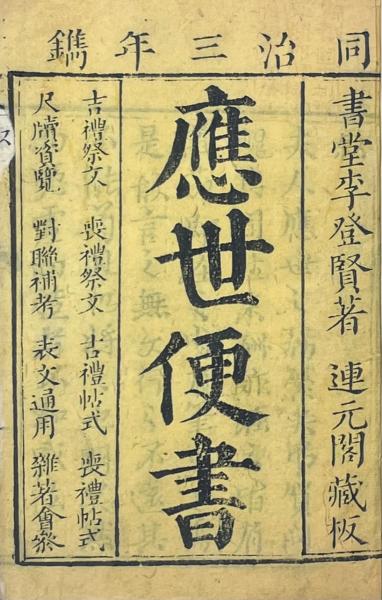 同治三年鐫
書堂李登賢著 連元閣藏板
應世便書
吉禮祭文 喪禮祭文 吉禮帖式 喪禮帖式
尺牘資覽 對聯補考 表文通用 雜著會參